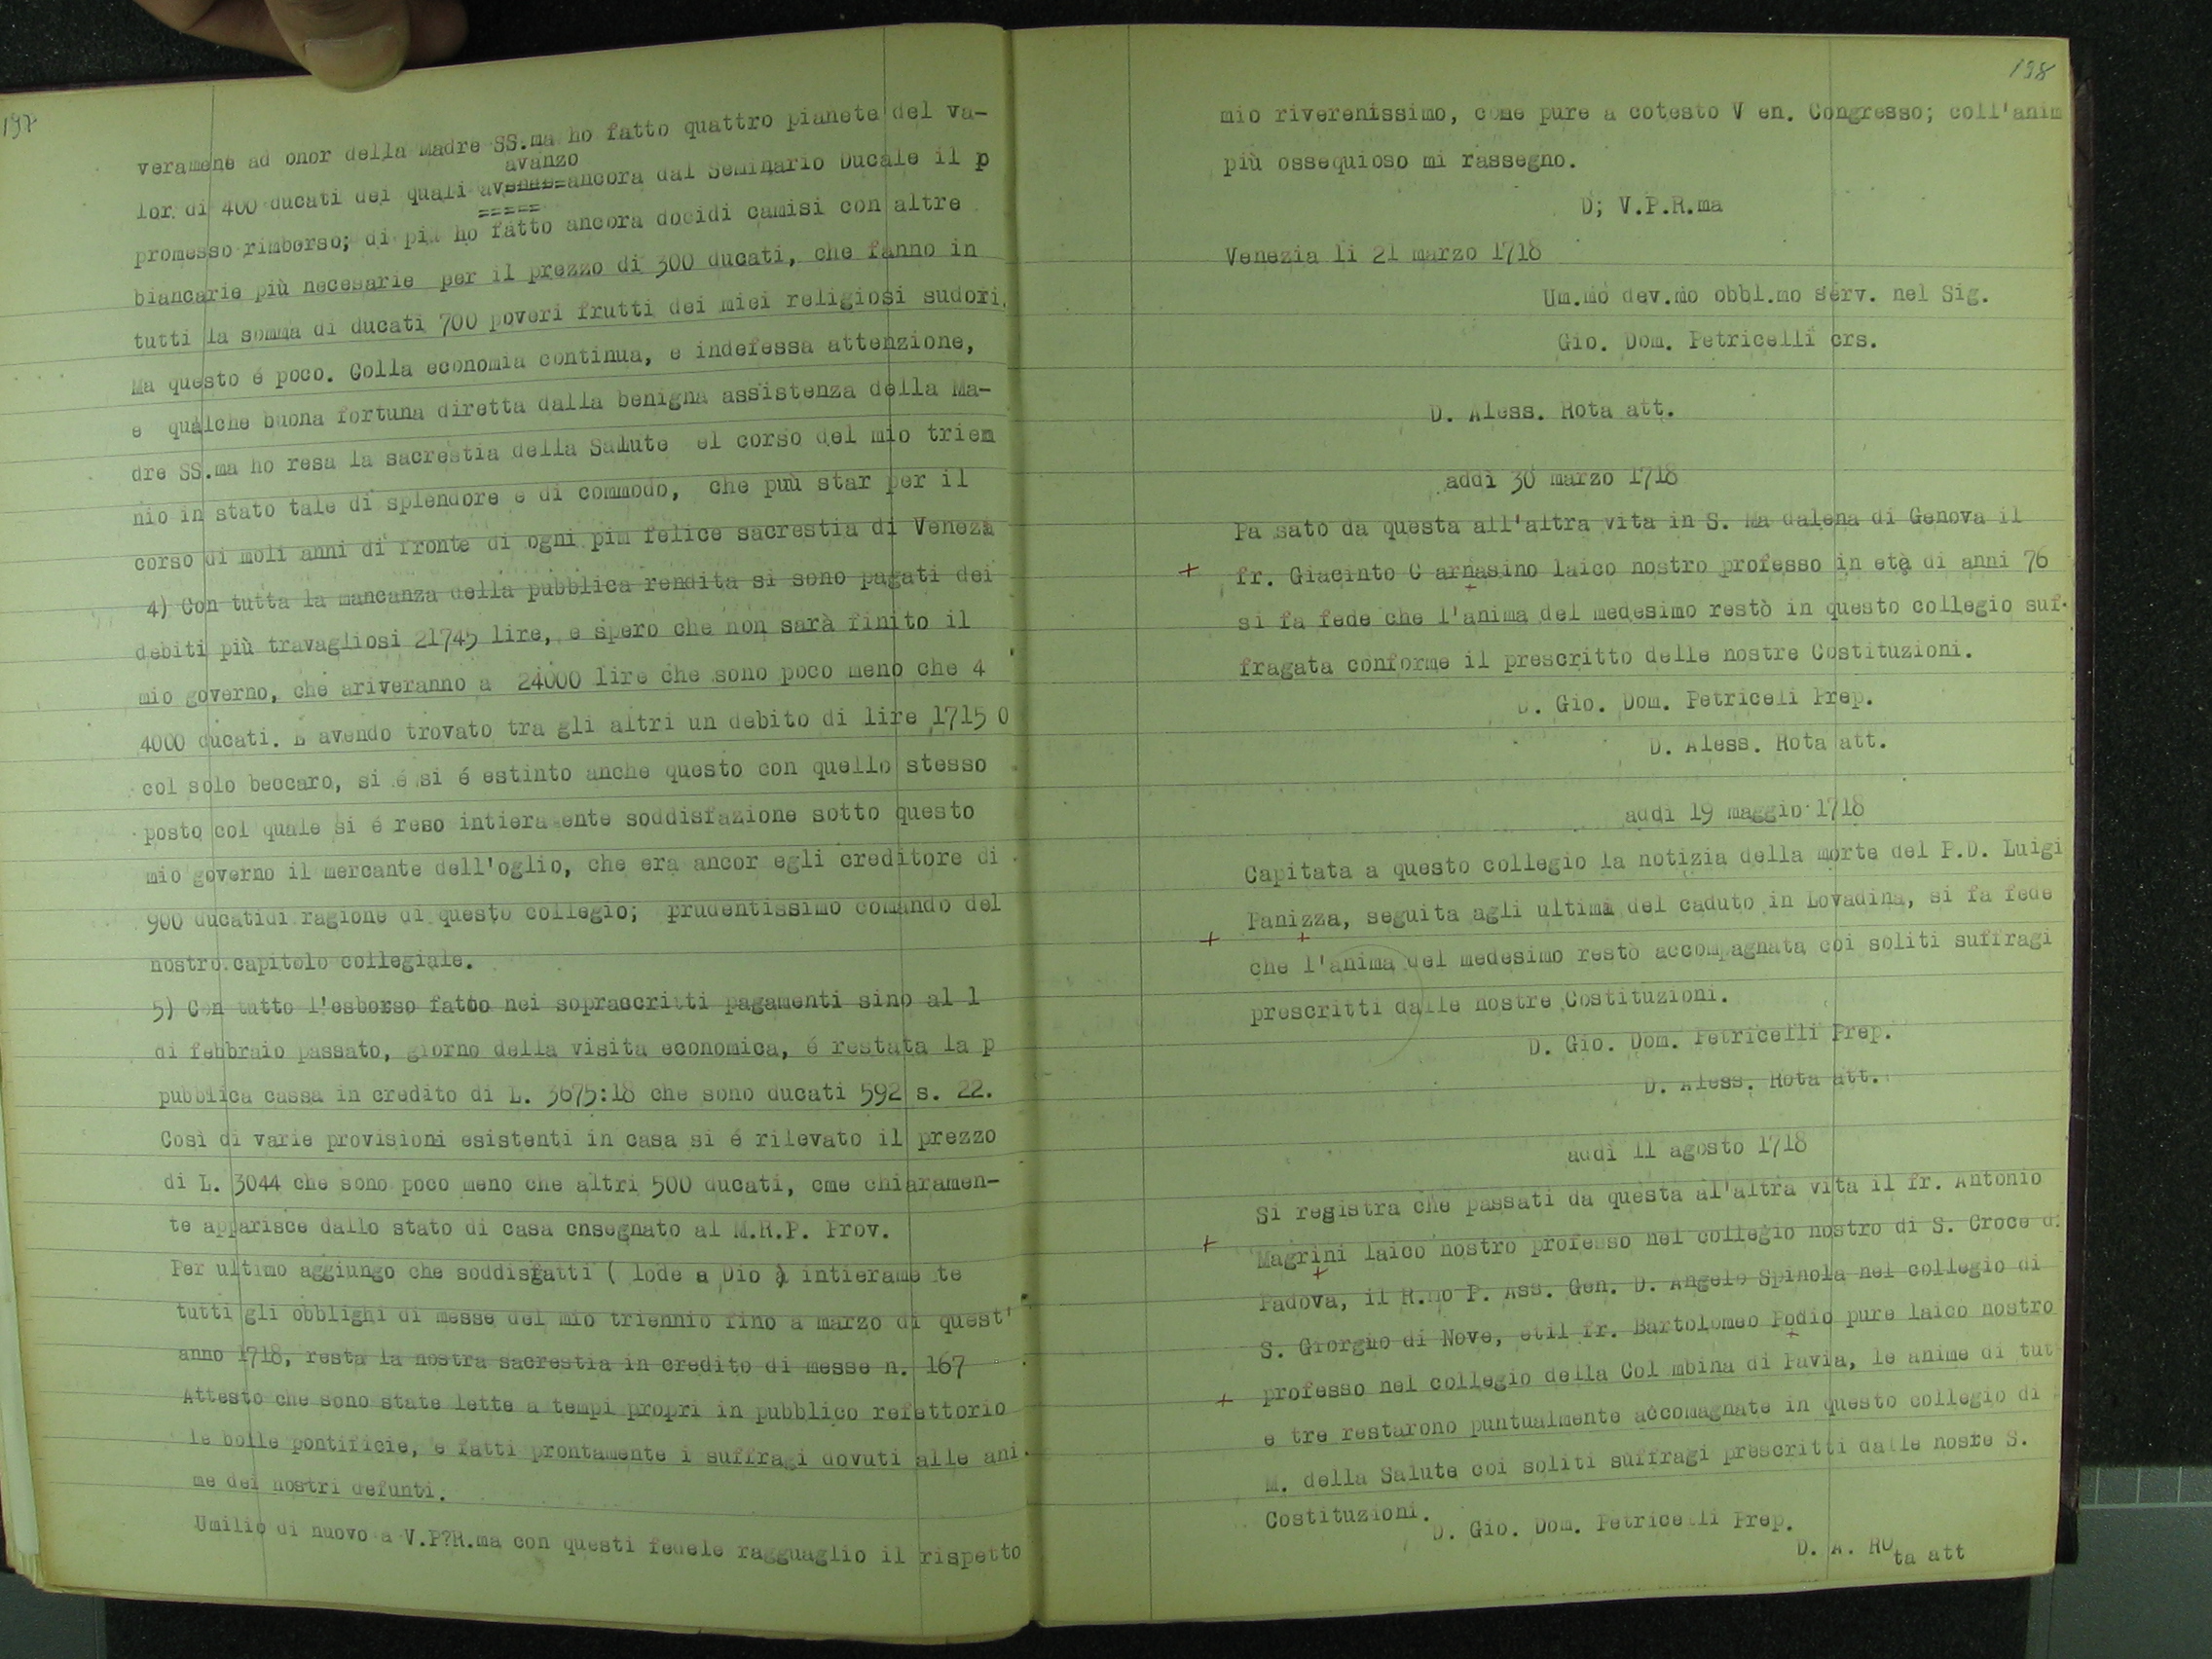 197
veramene ad onor della Madre SS.ma ho fatto quattro pianete del va-
avanzo
lor di 400 ducati dei quali avenae=ancora dal Seminario Ducale il p
promesso rimborso; di più ho fatto ancora docidi camisi con altre
biancarie più necesarie per il prezzo di 300 ducati, che fanno in
tutti la somma di ducati 700 poveri frutti dei miei religiosi sudori.
Ma questo é poco. Colla economia continua, e indefessa attenzione,
e qualche buona fortuna diretta dalla benigna assistenza della Ma-
dre SS.ma ho resa la sacrestia della Salute el corso del mio trien
nio in stato tale di splendore e di commodo, che può star per il
corso di moli anni di fronte di ogni più felice sacrestia di Venezi
4) Con tutta la mancanza della pubblica rendita si sono pagati dei
debiti più travagliosi 21745 lire, e spero che non sarà finito il
mio governo, che ariveranno a 24000 lire che sono poco meno che 4
4000 ducati. E avendo trovato tra gli altri un debito di lire 1715 0
col solo beccaro, si é si é estinto anche questo con quello stesso
posto col quale si é reso intiera ente soddisfazione sotto questo
mio governo il mercante dell'oglio, che era ancor egli creditore di
900 ducatidi ragione di questo collegio; prudentissimo comando del
nostro capitolo collegiale.
5) Con tutto l'esborso fatto nei sopraccritti pagamenti sino al 1
di febbraio passato, giorno della visita economica, é restata la p
pubblica cassa in credito di L. 3675:18 che sono ducati 592 s. 22.
Così di varie provisioni esistenti in casa si é rilevato il prezzo
di L. 3044 che sono poco meno che altri 500 ducati, cme chiaramen-
te apparisce dallo stato di casa cnsegnato al M.R.P. Prov.
Per ultimo aggiungo che soddisfatti ( lode a Dio ) intierame te
tutti gli obblighi di messe del mio triennio fino a marzo di quest'
anno 1718, resta la nostra sacrestia in credito di messe n. 167
Attesto che sono state lette a tempi propri in pubblico refettorio
le bolle pontificie, e fatti prontamente i suffragi dovuti alle ani
me dei nostri defunti.
Umilio di nuovo a V.P?R.ma con questi fedele ragguaglio il rispetto
198
mio riverenissimo, come pure a cotesto V en. Congresso; coll'anim
più ossequioso mi rassegno.
D; V.P.R.ma
Venezia li 21 marzo 1718
Um.mo dev.mo obbl.mo serv. nel Sig.
Gio. Dom. Petricelli crs.
D. Aless. Rota att.
addì 30 marzo 1718
Pa sato da questa all'altra vita in S. Ma dalena di Genova il
+ fr. Giacinto C arnasino laico nostro professo in età di anni 76
si fa fede che l'anima del medesimo restò in questo collegio suf-
fragata conforme il prescritto delle nostre Costituzioni.
D. Gio. Dom. Petriceli Prep.
D. Aless. Rota att.
addì 19 maggio 1718
Capitata a questo collegio la notizia della morte del P.D. Luigi
+ Panizza, seguita agli ultimi del caduto in Lovadina, si fa fede
che l'anima del medesimo restò accompagnata coi soliti suffragi
prescritti dalle nostre Costituzioni.
D. Gio. Dom. Petricelli Prep.
D. Aless. Rota att.
addì 11 agosto 1718
Si registra che passati da questa al'altra vita il fr. Antonio
+ Magrini laico nostro professo nel collegio nostro di S. Croce di
Padova, il R.mo P. Ass. Gen. D. Angelo Spinola nel collegio di
S. Giorgio di Nove, etil fr. Bartolomeo Podio pure laico nostro
+ professo nel collegio della Col mbina di Pavia, le anime di tut
e tre restarono puntualmente accomagnate in questo collegio di
M. della Salute coi soliti suffragi prescritti dalle nostre S.
Costituzioni.
D. Gio. Dom. Petricelli Prep.
D. A. Rota att